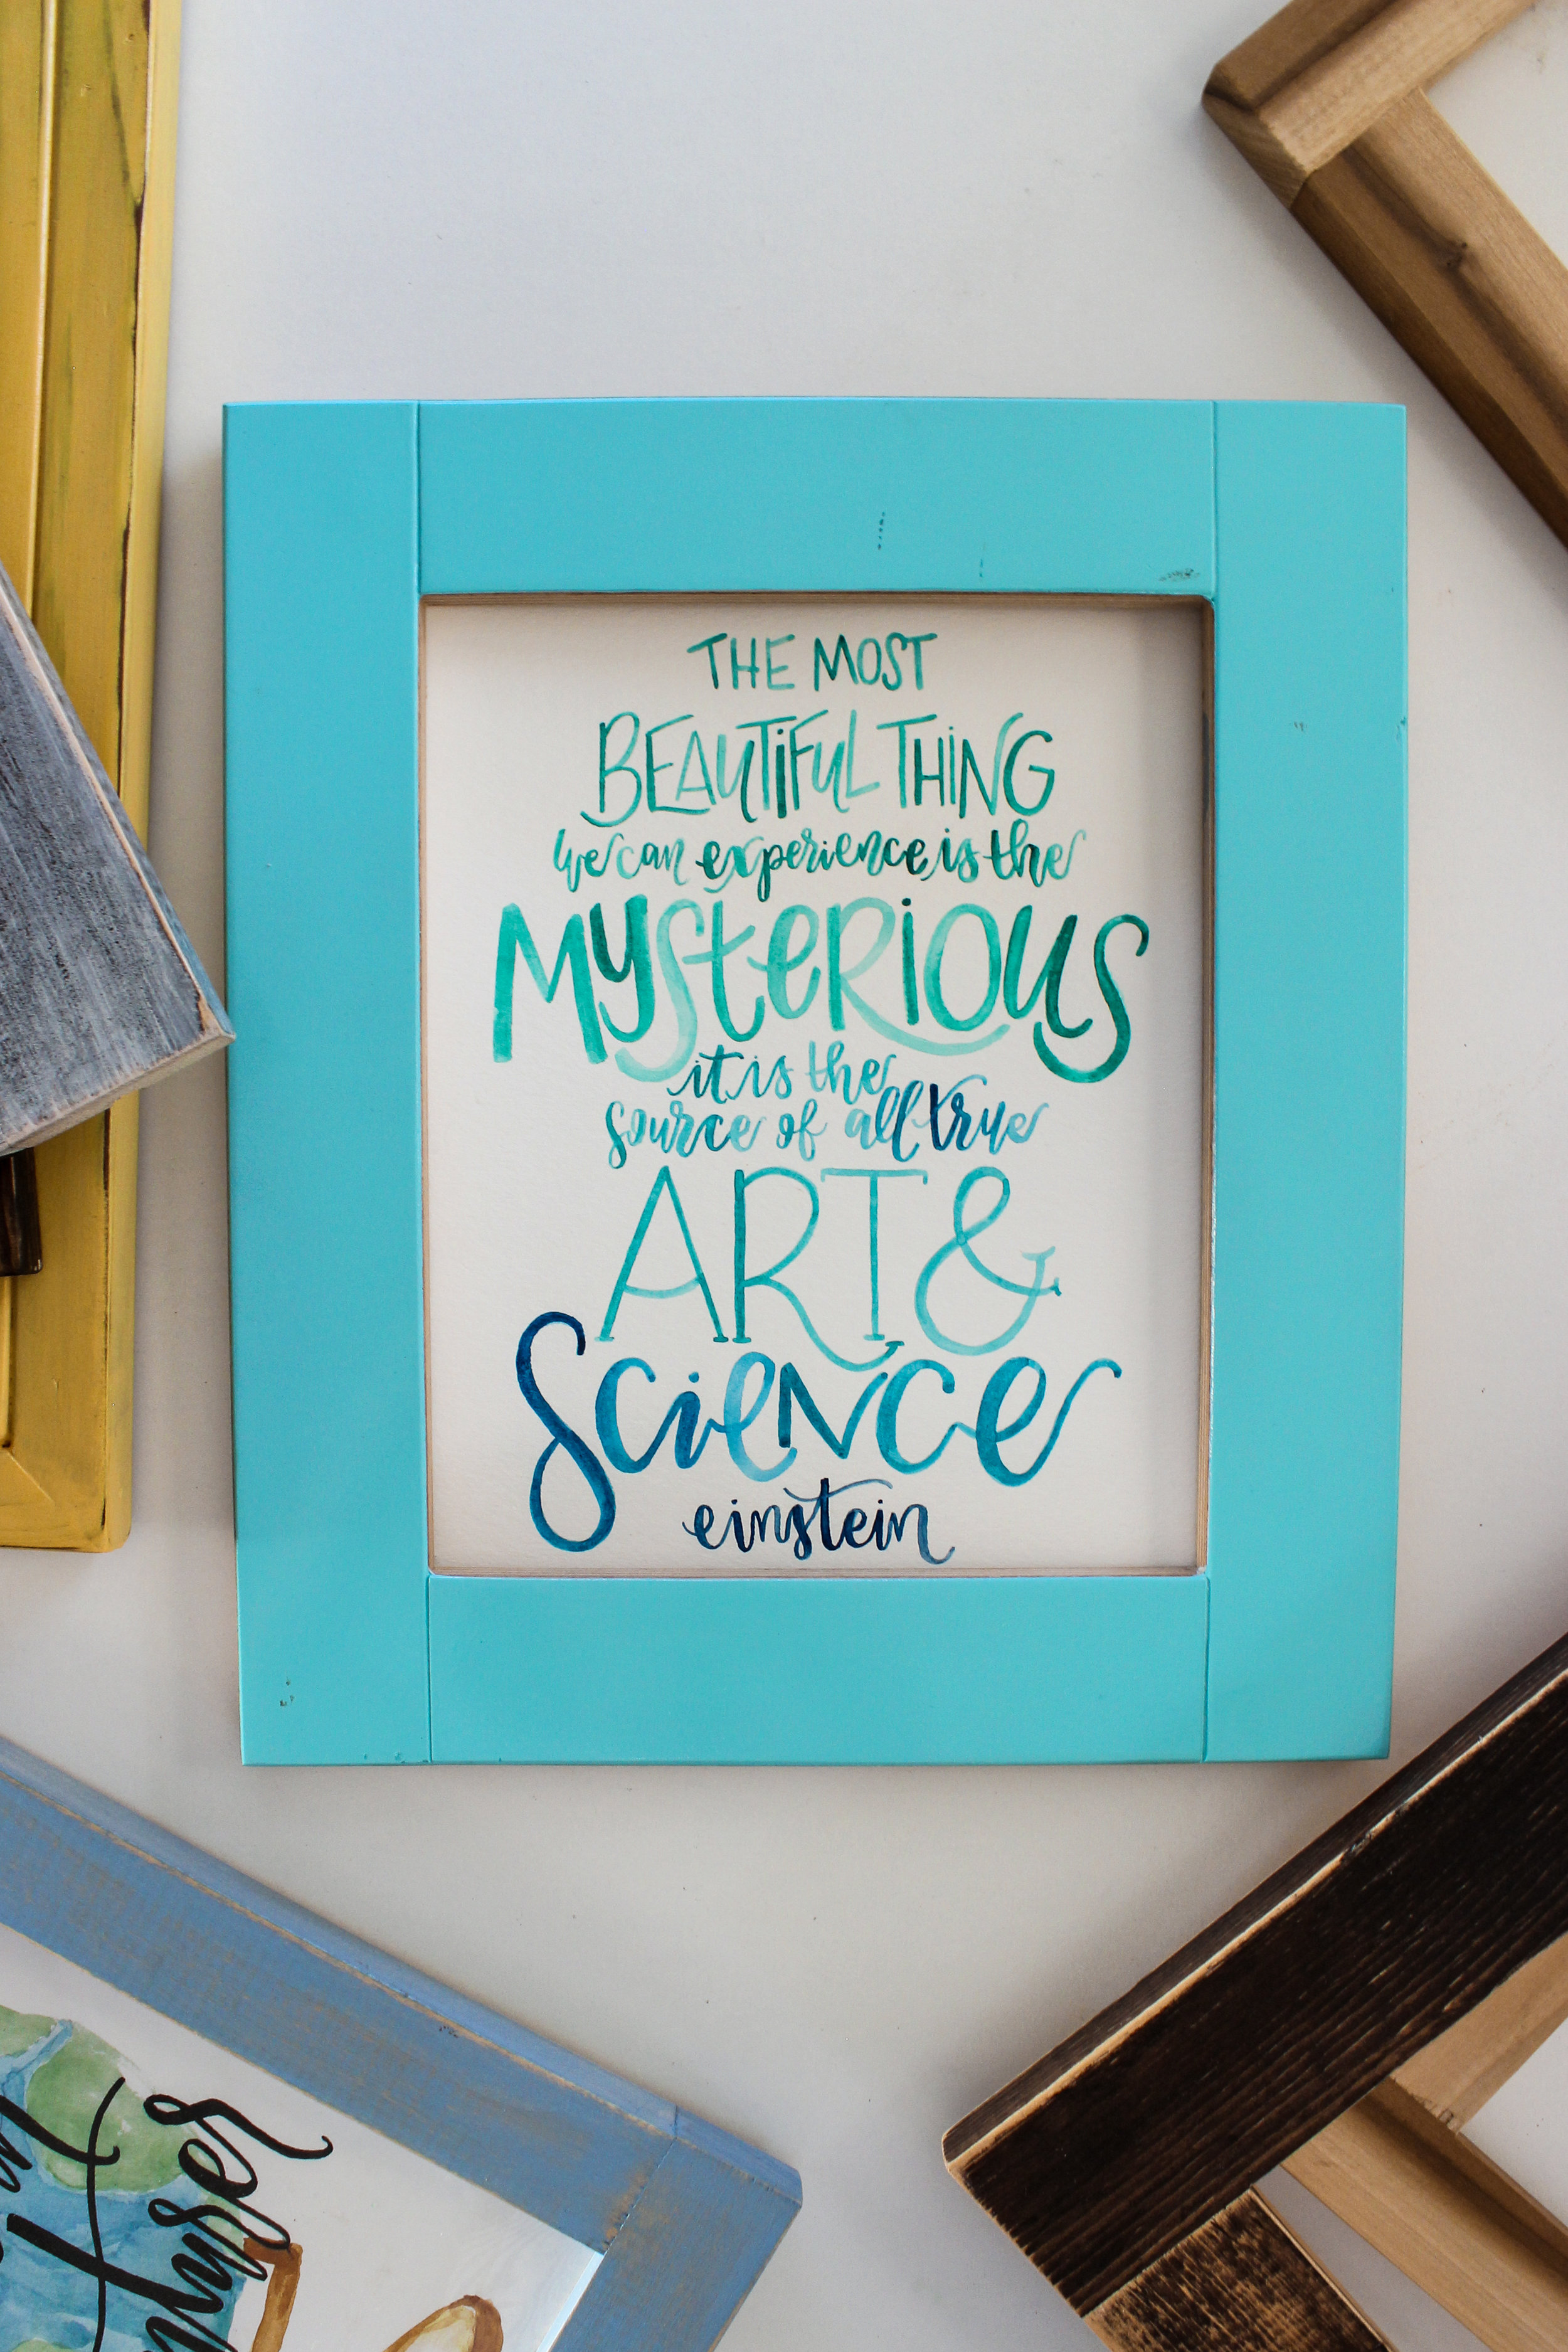 THE MOST
BEAUTIFUL THING
we can experience is the
MYSTERIOUS
it is the
source of all true
ART &
Science
einstein